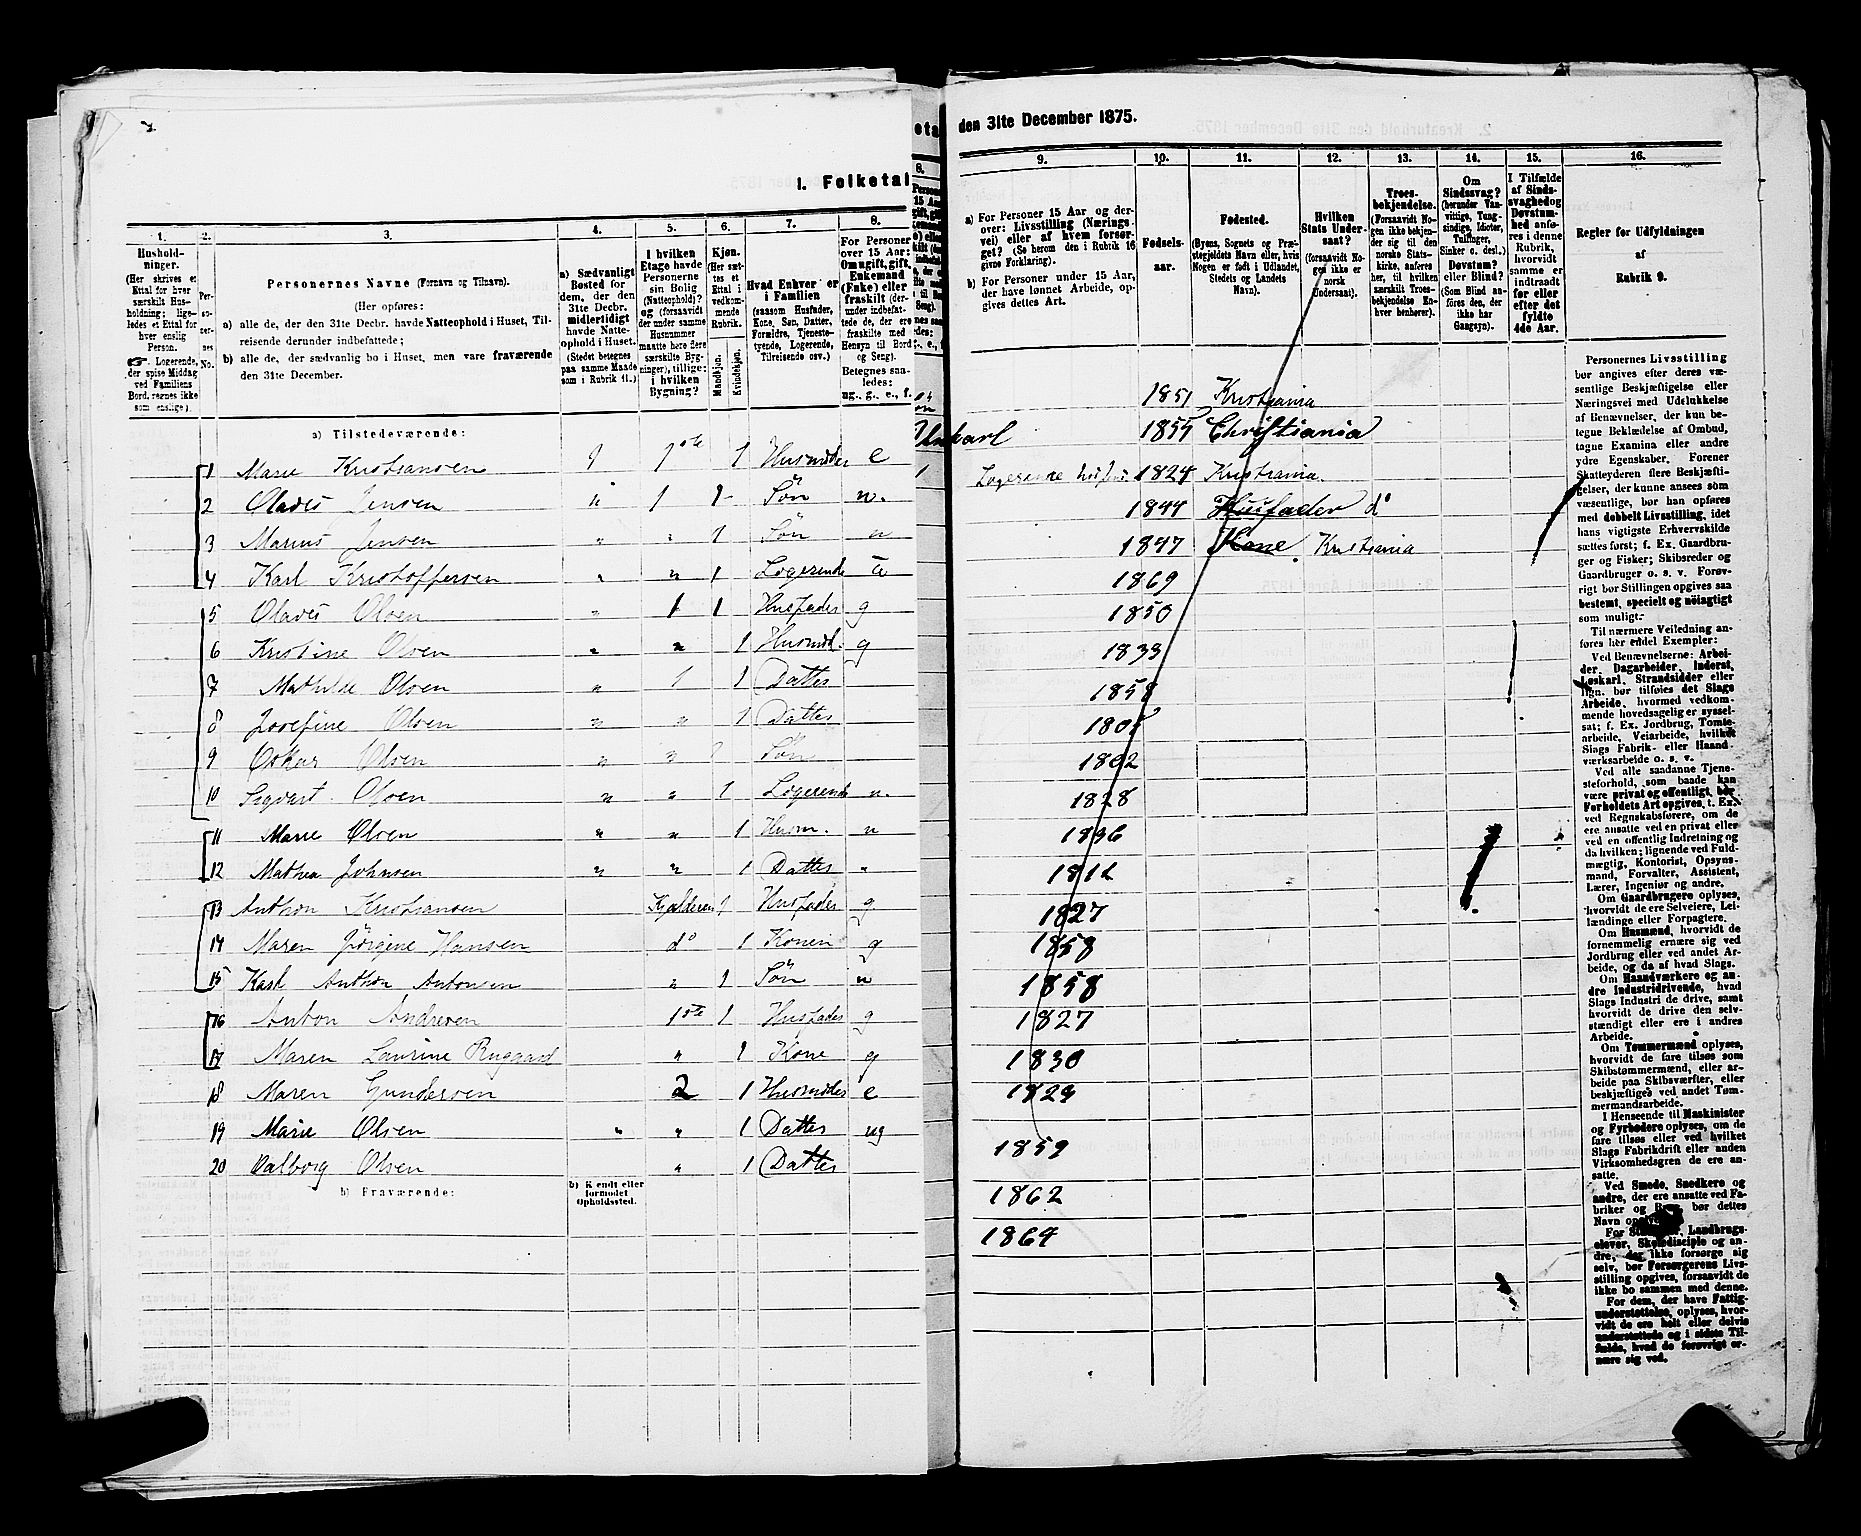 1. Folketal
den 31te December 1875.
1.
2.
3.
4.
5.
6.
7.
8.
Hushold-
ninger.
(Her skrives et
Ettal for hver
særskilt Hus-
holdning; lige-
ledes et Ettal for
hver enslig
Person.
☞ Logerende,
der spise Middag
ved Familiens
Bord, regnes ikke
som enslige).
Personernes Navne (Fornavn og Tilnavn).
(Her opføres:
a) alle de, der den 31te Decbr. havde Natteophold i Huset, Til-
reisende derunder indbefattede;
b) alle de, der sædvanlig bo i Huset, men vare fraværende
den 31te December.
a) Sædvanligt
Bosted for
dem, der den
31te Decbr.
midlertidigt
havde Natte-
ophold i Huset.
(Stedet betegnes
paa samme Maade
som i Rubrik 11.)
I hvilken
Etage havde
Personerne
sin Bolig
(Natteophold)?
og (forsaavidt
der under samme
Husnummer
maatte høre flere
særskilte Byg-
ninger), tillige:
i hvilken
Bygning?
Kjøn.
(Her sæt-
tes et
Ettal i
vedkom-
mende
Rubrik.
Mandkjøn.
Kvindekjøn.
Hvad Enhver er
i Familien
(saasom Husfader,
Kone, Søn, Datter,
Forældre, Tjeneste-
tyende, Logerende,
Tilreisende osv.)
For Personer
over 15 Aar:
Om ugift, gift,
Enkemand
(Enke) eller
fraskilt (der-
under indbefat-
tede, de, der ere
fraskilte med
Hensyn til Bord
og Seng).
Betegnes saa-
ledes:
ug., g., e., f.
a) Tilstedeværende:
1 Marie Kristiansen 1 1ste 1 Husmoder e
2 Olaves Jensen " 1 1 Søn u.
3 Marius Jensen " " 1 Søn u
4 Karl Kristoffersen " " 1 Logerende
5 Olaves Olsen " 1 1 Husfader g
6 Kristine Olsen " " 1 Husmod. g
7 Mathilde Olsen " 1 1 Datter
8 Josefine Olsen " " 1 Datter
9 Oskar Olsen " " 1 Søn
10 Sigvart Olsen " " 1 Logerende u.
11 Marie Olsen " " 1 Husm. u
12 Mathea Johnsen " " 1 Datter "
13 Anthon Kristiansen Kjælderen 1 Husfader g
14 Maren Jörgine Hansen do 1 Konen g
15 Karl Anthon Antonsen " 1 Søn u
16 Anton Andresen 1ste 1 Husfader g
17 Maren Laurine Ruggaard " 1 Kone g
18 Maren Gundersen 2 1 Husmoder e
19 Marie Olsen " " 1 Datter ug
20 Valborg Olsen " 1 Datter
b) Fraværende:
b) Kjendt eller
formodet
Opholdssted.
9.
10.
11.
12.
13.
14.
15.
16.
a) For Personer 15 Aar og der-
over: Livsstilling (Nærings-
vei) eller af hvem forsør-
get? (Se herom den i Rubrik 16
givne Forklaring).
b) For Personer under 15 Aar,
der have lønnet Arbeide, op-
gives dettes Art.
Fødsels-
aar.
Fødested.
(Byens, Sognets og Præ-
stegjeldets Navn eller, hvis
Nogen er født i Udlandet,
Stedets og Landets
Navn).
Hvilken
Stats Under-
saat?
(forsaavidt No-
gen ikke er
norsk
Undersaat).
Troes-
bekjendelse.
(Forsaavidt No-
gen ikke bekjen-
der sig til den
norske Stats-
kirke, anføres
her, til hvilken
særskilt Troes-
bekjendelse En-
hver benhører).
Om
Sindssvag?
(herunder Van-
vittige, Tung-
sindige, Idioter,
Tullinger,
Sinker o. desl.)
Døvstum?
eller Blind?
(Som Blind an-
føres den, der
ikke har
Gangsyn).
I Tilfælde
af Sinds-
svaghed og
Døvstum-
hed anfø-
res i denne
Rubrik,
hvorvidt
samme er
indtraadt
før eller
efter det
fyldte
4de Aar.
Regler for Udfyldningen
af
Rubrik 9.
1851 Kristiania
1855 Christiania
Logerende 1824 Kristiania.
1844 Husfader do
1847 Kone Kristiania
1869
1850
1833
1858
1802
1828
1836
1812
1827
1858
1858
1827
1830
1829
1859
1862
1864
Personernes Livsstilling
bør angives efter deres væ-
sentlige Beskjæftigelse eller
Næringsvei med Udelukkelse
af Benævnelser, der kun be-
tegne Beklædelse af Ombud,
tagne Examina eller andre
ydre Egenskaber. Forener
Skatteyderen flere Beskjæfti-
gelser, der kunne ansees som
væsentlige, bør han opføres
med dobbelt Livsstilling, idet
hans vigtigste Erhvervskilde
sættes først; f. Ex. Gaardbru-
ger og Fisker; Skibsreder og
Gaardbruger o. s. v. Forøv-
rigt bør Stillingen opgives saa
bestemt, specielt og nøiagtigt
som muligt.
Til nærmere Veiledning an-
føres her endel Exempler:
Ved Benævnelserne: Arbei-
der, Dagarbeider, Inderst,
Løskarl, Strandsidder eller
lign. bør tilføies det Slags
Arbeide, hvormed vedkom-
mende hovedsagelig er syssel-
sat; f. Ex. Jordbrug, Tomte-
arbeide, Veiarbeide, hvilket
Slags Fabrik- eller Haand-
værksarbeide o. s. v.
Ved alle saadanne Tjene-
steforhold, som baade kan
være privat og offentligt, bør
Forholdets Art opgives, t. Ex.
ved Regnskabsførere, om de
ere ansatte ved en privat eller
ved en offentlig Indretning og
da hvilken; lignende ved Fuld-
mægtig, Kontorist, Opsyns-
mand, Forvalter, Assistent,
Lærer, Ingeniør og andre.
Om Gaardbrugere oplyses,
hvorvidt de ere Selveiere, Lei-
lændinge eller Forpagtere.
Om Husmænd, hvorvidt de
fornemmelig ernære sig ved
Jordbrug eller ved andet Ar-
beide, og da af hvad Slags.
Om Haandværkere og an-
dre Industridrivende, hvad
Slags Industri de drive, samt
hvorvidt de drive den selv-
stændigt eller ere i andres
Arbeide.
Om Tømmermænd oplyses,
hvorvidt de fare tilsøs som
Skibstømmermænd, eller ar-
beide paa Skibsværfter, eller
beskjæftiges ved andet Tøm-
mermandsarbeide.
I Henseende til Maskinister
og Fyrbødere oplyses, om de
fare tilsøs eller ved hvilket
Slags Fabrikdrift eller anden
Virksomhedsgren de ere an-
satte.
Ved Smede, Snedkere og
andre, der ere ansatte ved Fa-
briker og Brug, bør dettes
Navn opgives.
For Landbrugs-
elever, Skoledisciple og an-
dre, der ikke forsørge sig
selv, bør Forsørgerens Livs-
stilling opgives, forsaavidt de
ikke bo sammen med denne.
For dem, der have Fattig-
understøttelse, oplyses, hvor-
vidt de ere helt eller delvis
understøttede og i sidste Til-
fælde, hvad de forøvrigt er-
nære sig ved.